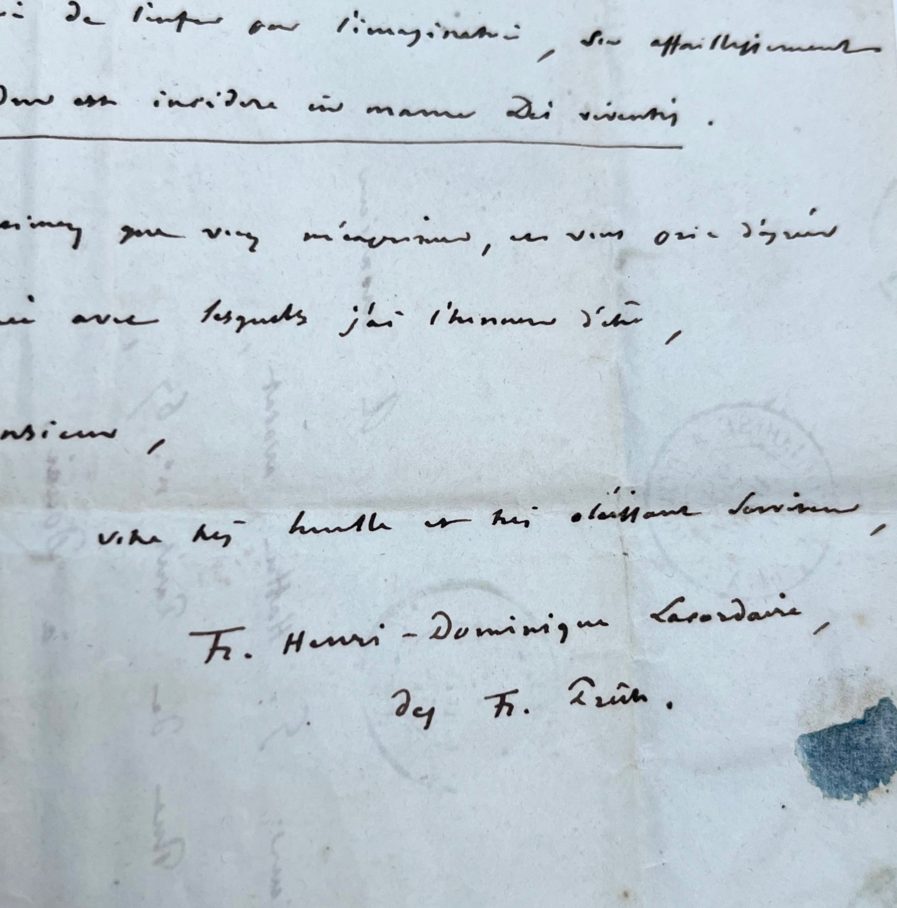 de l'enfer par l'imagination, son affaiblissement
est incidere in manus Dei viventis.
que vous m'exprimez, et vous prie d'agréer
avec lesquels j'ai l'honneur d'être,
onsieur,
votre très humble et très obéissant serviteur,
Fr. Henri-Dominique Lacordaire,
des Fr. Prêch.